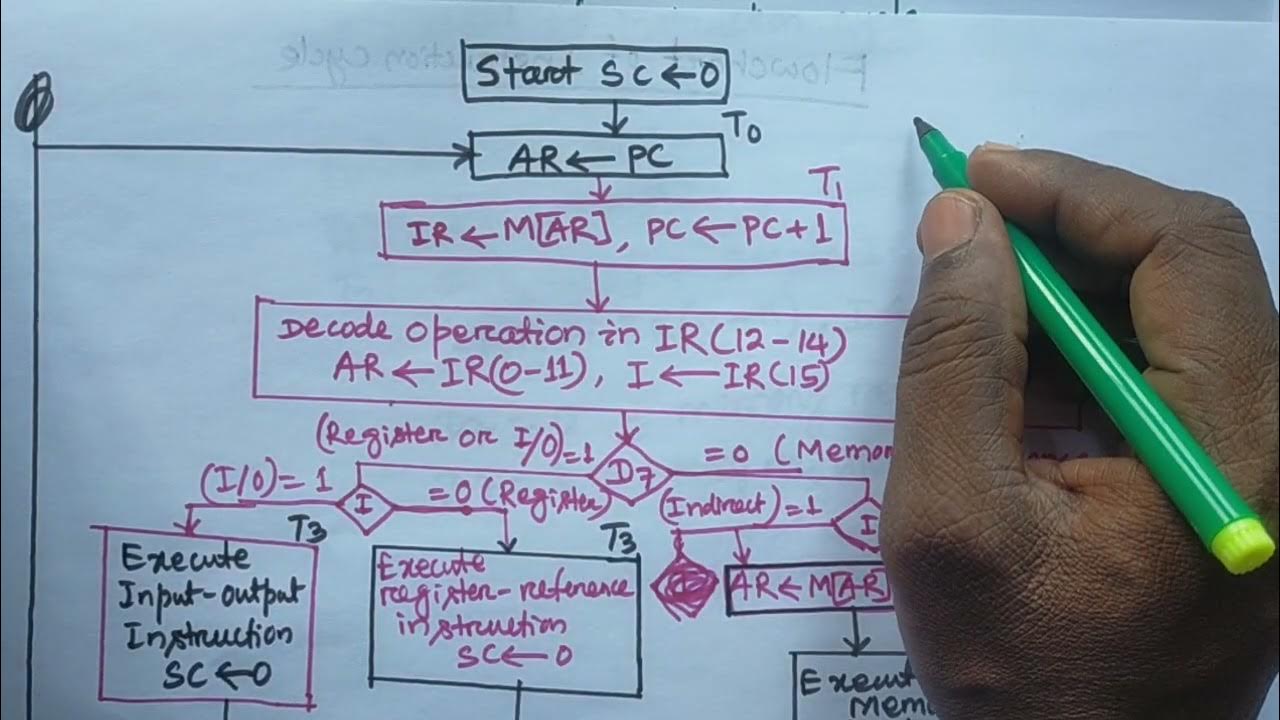 Start SC ← 0
T0
AR ← PC
T1
IR ← M[AR], PC ← PC + 1
Decode opercation in IR(12-14)
AR ← IR(0-11), I ← IR(15)
(Register or I/O) = 1
D7
= 0 (Memor
(I/O) = 1
I
= 0 (Register)
(Indirect) = 1
I
T3
T3
Execute
Input-output
Instruction
SC ← 0
Execute
register-reference
instruction
SC ← 0
AR ← M[AR]
Execut
Mem